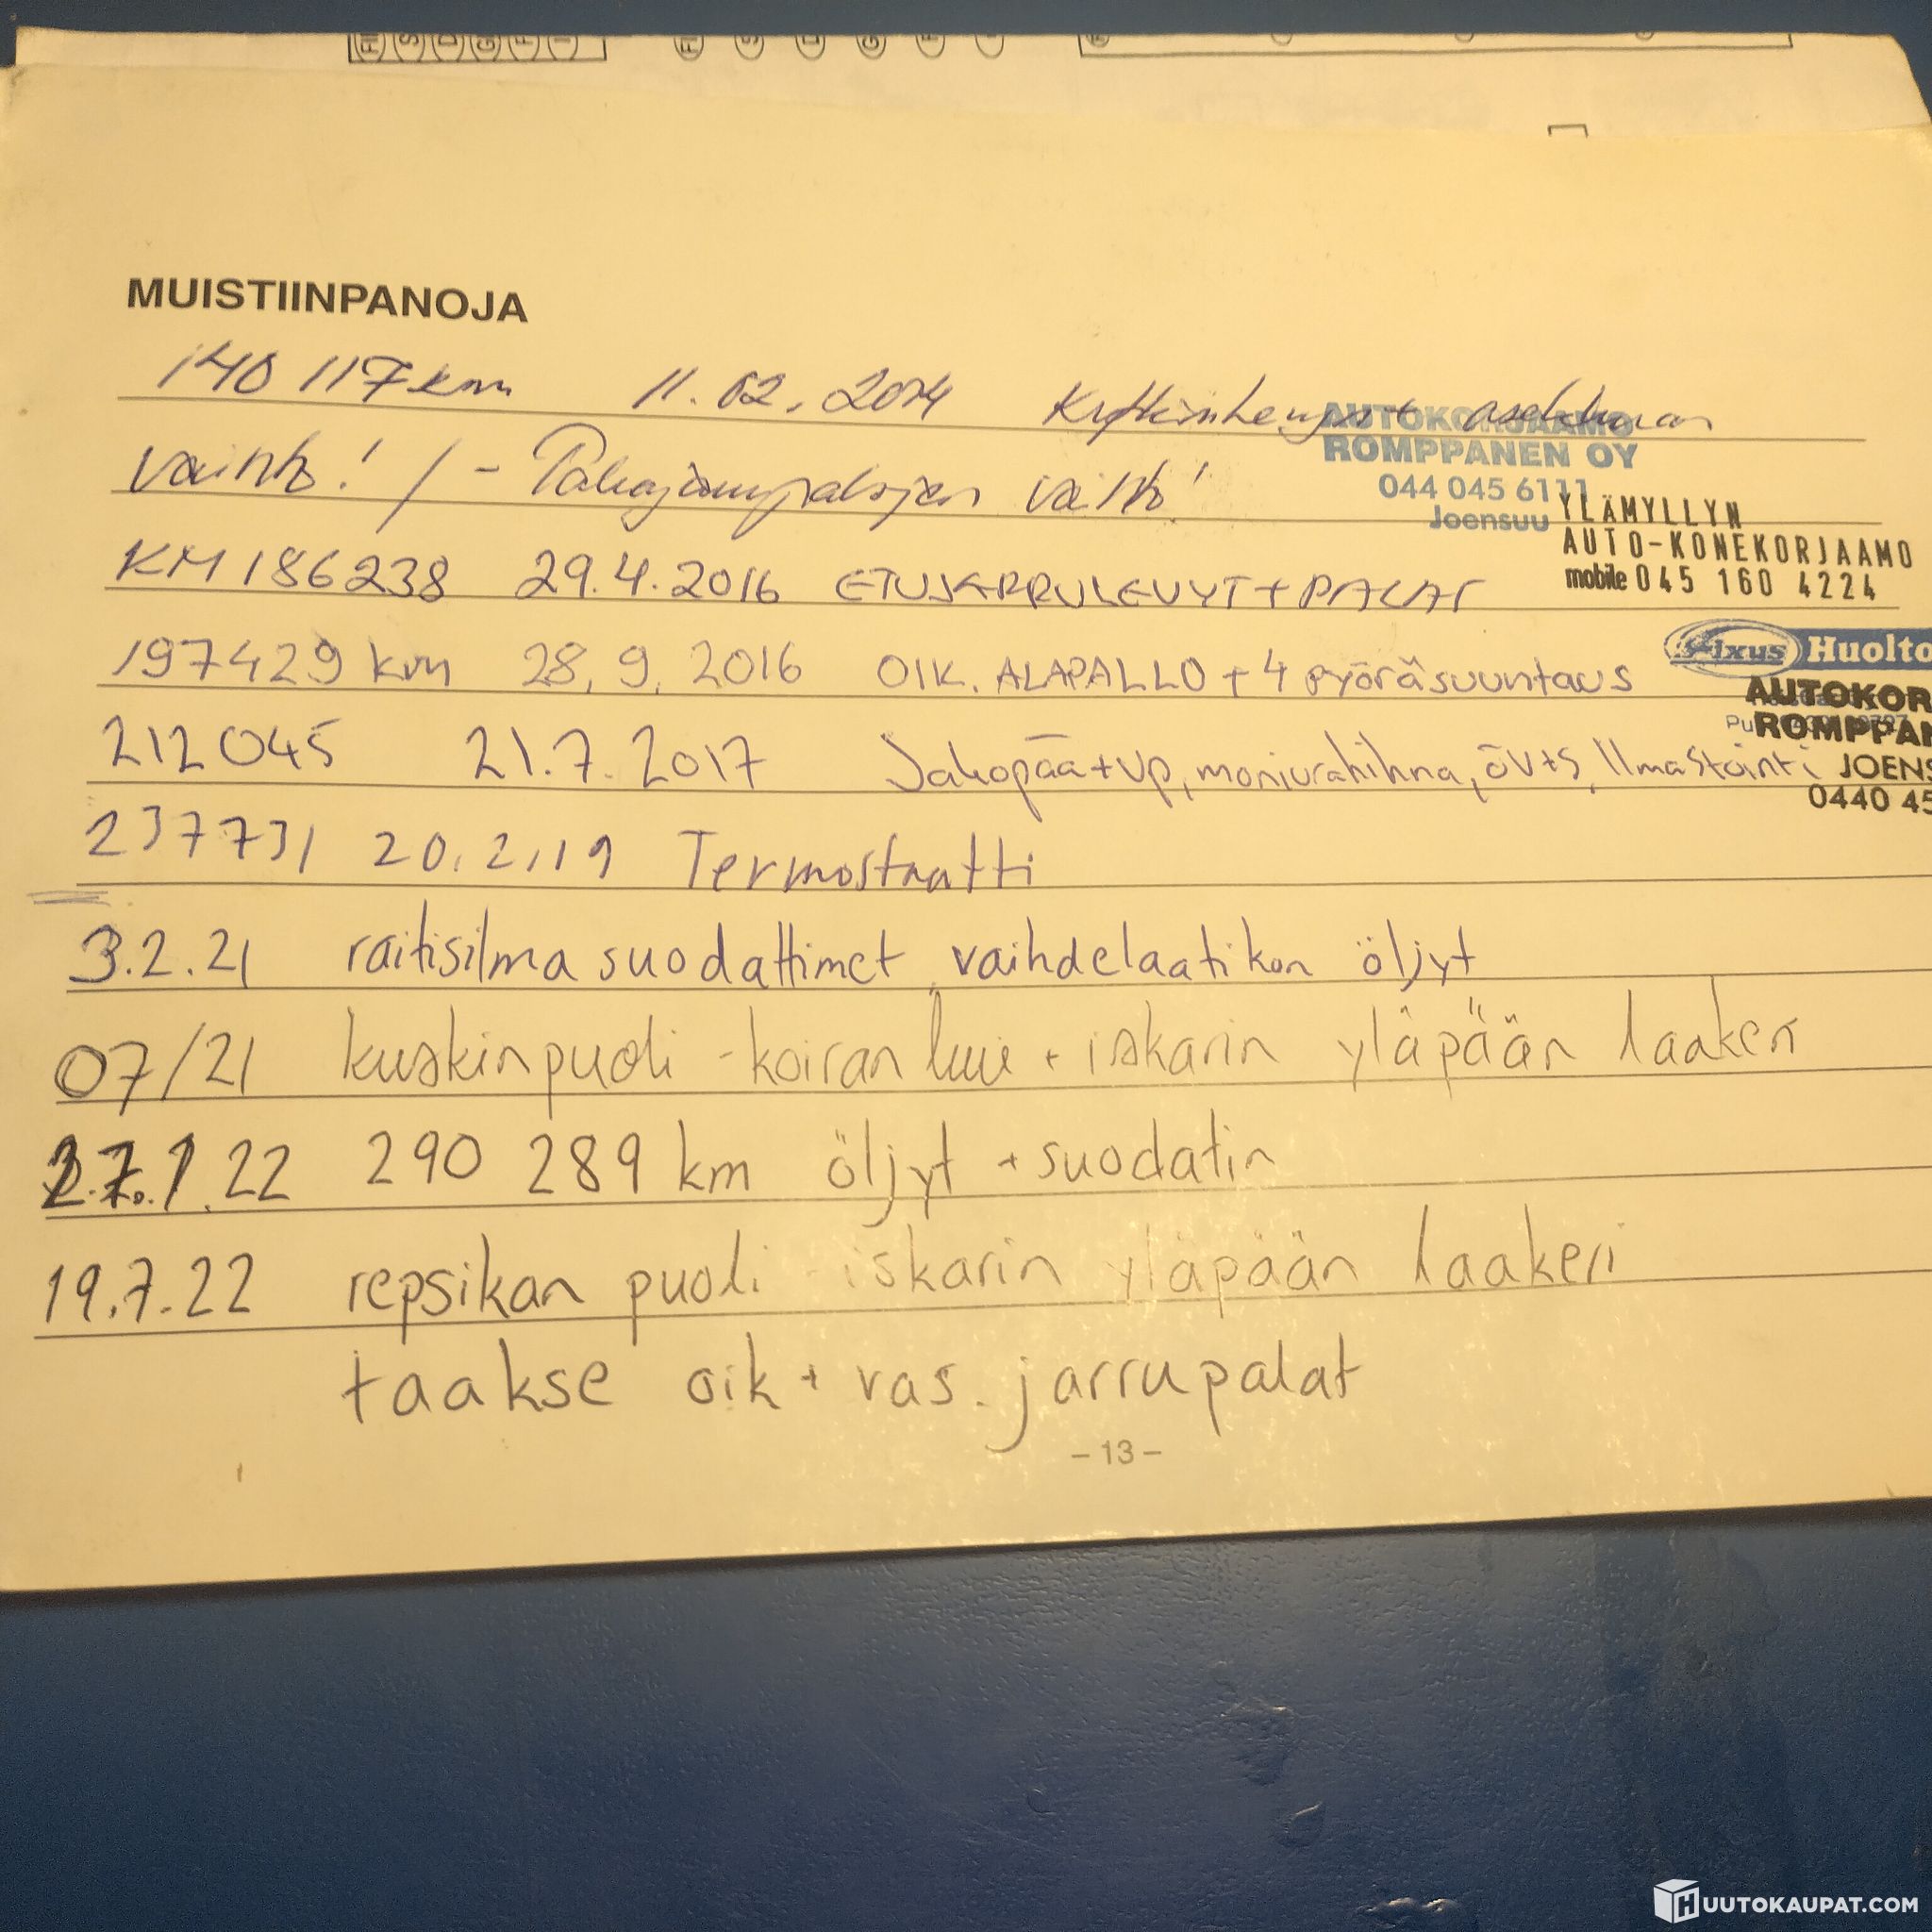 MUISTIINPANOJA
140 117 km 11.02.2014
vaihto! / - Takajarrupalojen vaihto!
AUTOKORJAAMO
ROMPPANEN OY
044 045 6111
Joensuu
YLÄMYLLYN
AUTO-KONEKORJAAMO
mobile 045 160 4224
KM 186238 29.4.2016 ETUJARRULEVYT + PALAT
197429 km 28.9.2016 OIK. ALAPALLO + 4 pyöräsuuntaus
Fixus Huolto
AUTOKOR
ROMPPAN
JOENS
0440 45
212045 21.7.2017 Jakopää + vp, moniurahihna, öv+s, Ilmastointi
237731 20.2.19 Termostaatti
3.2.21 raitisilmasuodattimet, vaihdelaatikon öljyt
07/21 kuskinpuoli - koiranluu + iskarin yläpään laakeri
27.1.22 290 289 km öljyt + suodatin
19.7.22 repsikan puoli - iskarin yläpään laakeri
taakse oik + vas. jarrupalat
- 13 -
HUUTOKAUPAT.COM